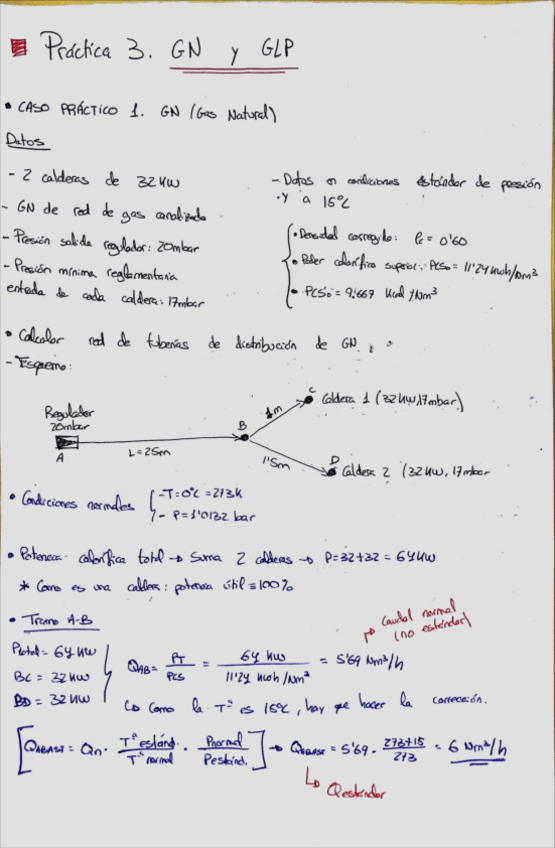 Práctica 3. GN y GLP
• CASO PRÁCTICO 1. GN (Gas Natural)
Datos
- 2 calderas de 32 KW
- GN de red de gas canalizado
- Presión salida regulador: 20mbar
- Presión mínima reglamentaria
entrada de cada caldera: 17mbar
- Datos en condiciones estándar de presión
y a 15ºC
• Densidad corregida: ρc = 0'60
• Poder calorífico superior: PCSo = 11'24 Kwh/Nm³
• PCSo = 9.667 Kcal/Nm³
• Calcular red de tuberías de distribución de GN.
- Esquema:
Regulador
20mbar
A
L=25m
B
1m
C
Caldera 1 (32 KW, 17mbar)
1'5m
D
Caldera 2 (32 KW, 17mbar
• Condiciones normales
- T=0ºC = 273K
- P=1'0132 bar
• Potencia calorífica total → Suma 2 calderas → P=32+32 = 64 KW
* Como es una caldera: potencia útil = 100%
• Tramo A-B
Ptotal = 64 KW
BC = 32 KW
BD = 32 KW
QAB = PT/PCS = 64 KW/11'24 Kwh/Nm³ = 5'69 Nm³/h
→ Caudal normal
(no estándar)
↳ Como la Tº es 15ºC, hay que hacer la corrección.
[QABAST = Qn · Tº estánd./Tº normal · Pnormal/Pestánd.] → QABAST = 5'69 · 273+15/273 = 6 Nm³/h
↳ Qestándar